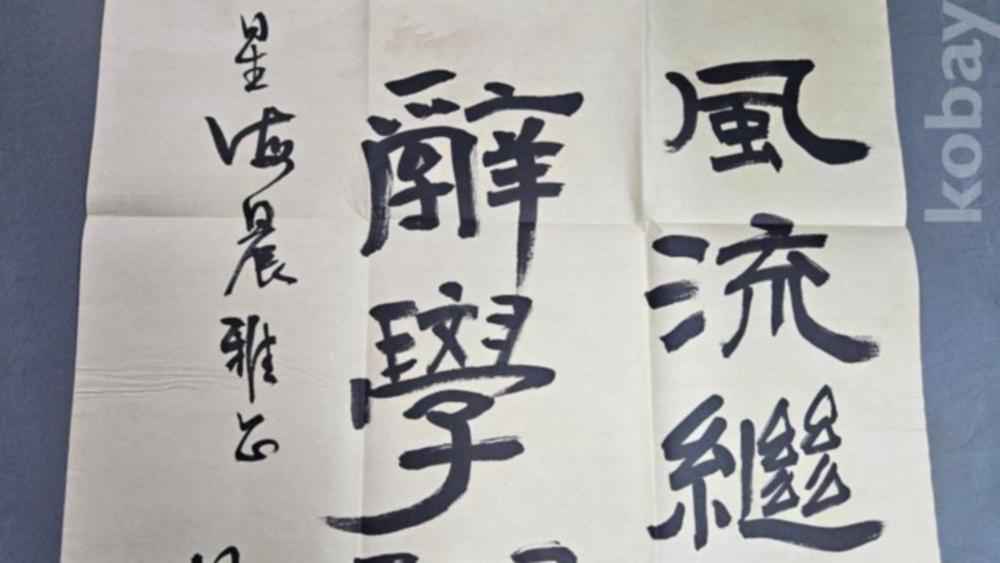 風流繼
辭學
星海晨雅正
kobay